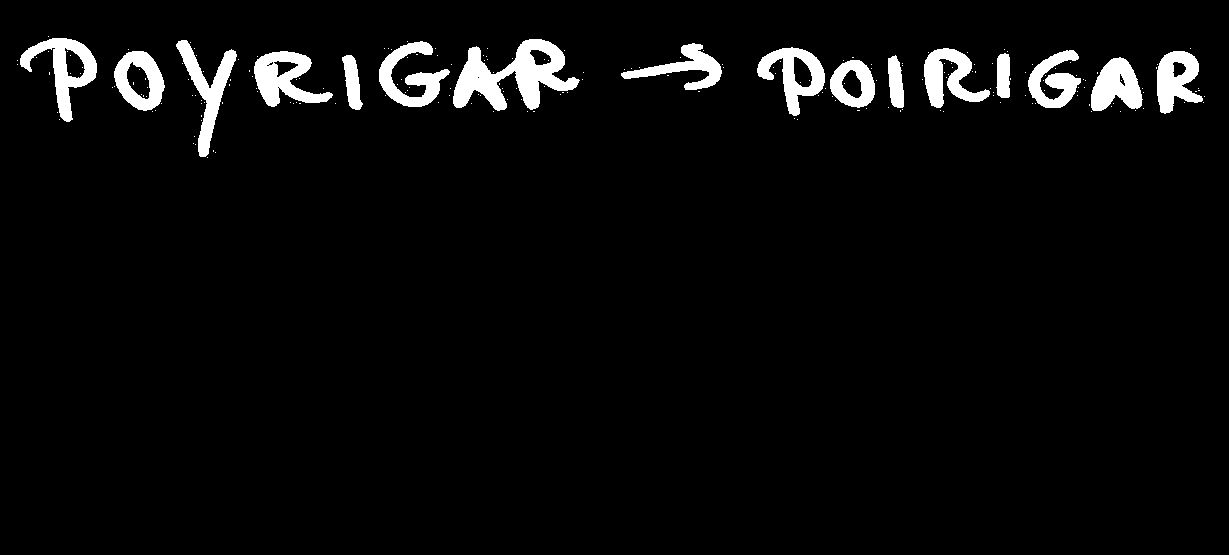 POYRIGAR → POIRIGAR